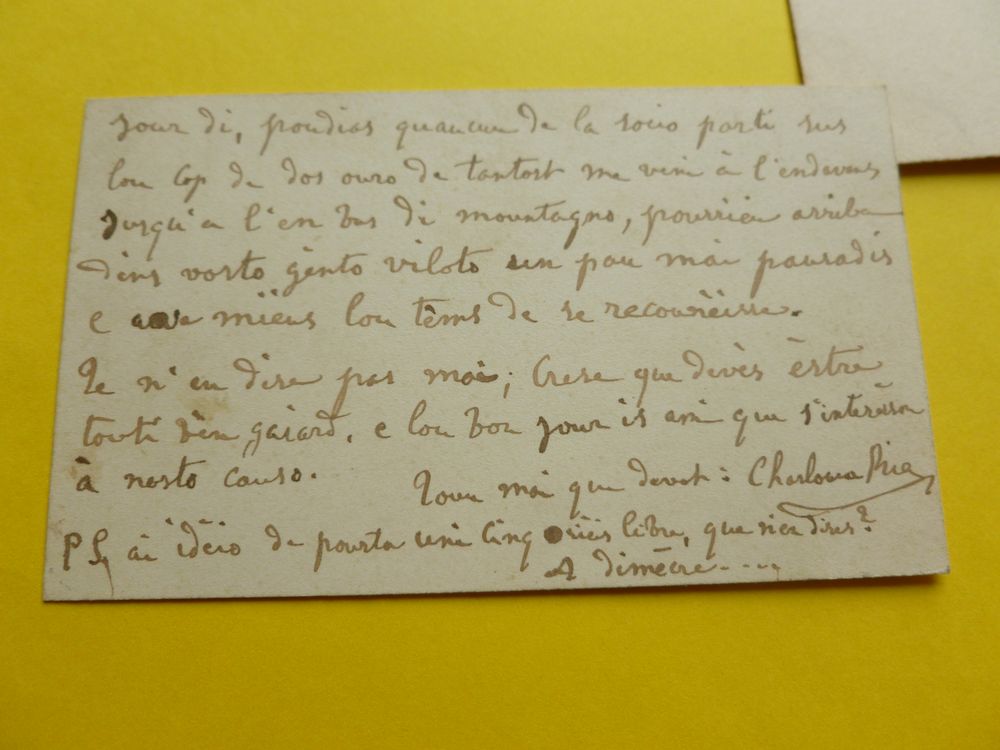 jour di, poudias quaucun de la soucio parti sus
lou cop de dos ouro de tantost me veni à l'endavans
jusqu'a l'en bas di mountagno, pourrieu arriba
dins vosto gènto viloto un pau mai pausadis
e mièus lou tèms de se recounèisse.
Te n'en dise pas mai; Crese que devès èstre
touti bèn gaiard, e lou bon jour is ami que s'interèsson
à nosto causo.
Toun mai que devot: Charloun Rieu
PS, ai idèio de pourta uni cinq siès libre, que n'en dises?
A dimècre....